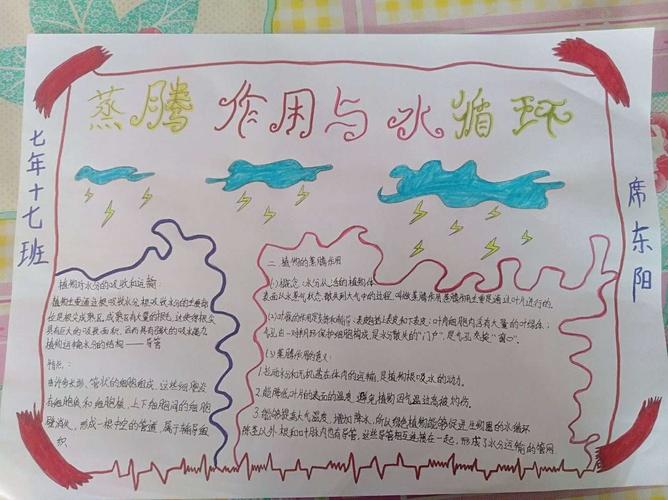 蒸腾作用与水循环
七年十七班
席东阳
植物对水分的吸收和运输:
植物主要通过根吸收水分,根吸收水分的主要部
位是根尖成熟区,成熟区有大量的根毛,这使得根尖
具有巨大的吸收面积,因而具有强大的吸水能力
植物运输水分的结构——导管
特点:
由许多长形、管状的细胞组成,这些细胞没
有细胞质和细胞核,上下细胞间的细胞
壁消失,形成一根中空的管道,属于输导组
织.
二.植物的蒸腾作用
(1)概念:水分从活的植物体
表面以水蒸气状态,散失到大气中的过程,叫做蒸腾作用蒸腾作用主要是通过叶片进行的.
气孔由一对半月形保卫细胞构成,是水分散失的"门户",是气体交换"窗口".
(3)蒸腾作用的意义:
1.拉动水和无机盐在体内的运输,是植物根吸水的动力.
2.能降低叶片的表面的温度,避免植物因气温过高被灼伤.
3.能够提高大气湿度,增加降水,所以绿色植物能够促进生物圈的水循环
除茎以外,根和叶脉内也有导管,这些导管相互连接在一起,形成了水分运输的管网